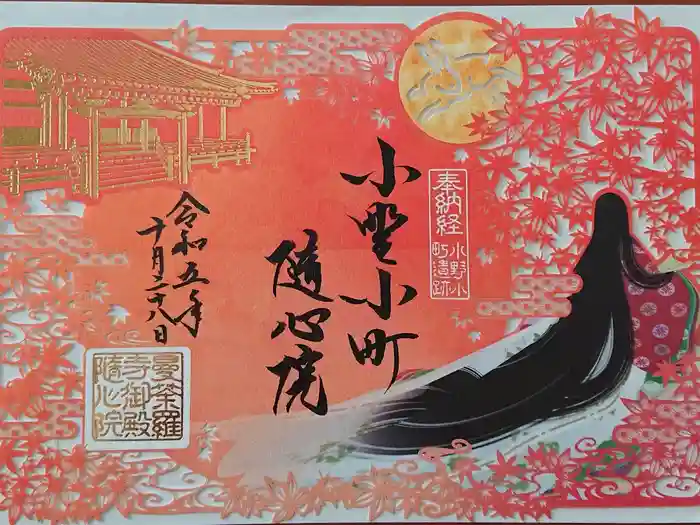 奉納経
小野小
町遺跡
小野小町
隨心院
令和五年
十月二十八日
曼荼羅
寺御殿
隨心院